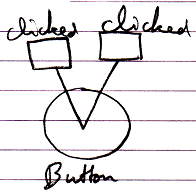 clicked clicked
Button